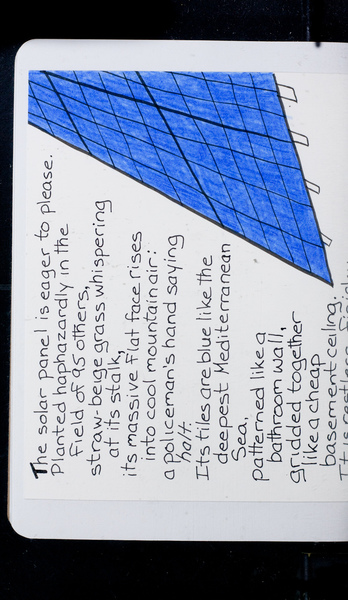 The solar panel is eager to please.
Planted haphazardly in the
field of 95 others,
straw-beige grass whispering
at its stalk,
its massive flat face rises
into cool mountain air:
a policeman's hand saying
halt.
Its tiles are blue like the
deepest Mediterranean
Sea,
patterned like a
bathroom wall,
gridded together
like a cheap
basement ceiling.
It is restless,